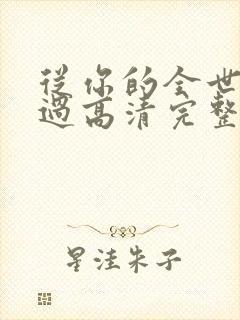 從你的全世
過高清完整
星洼朱子